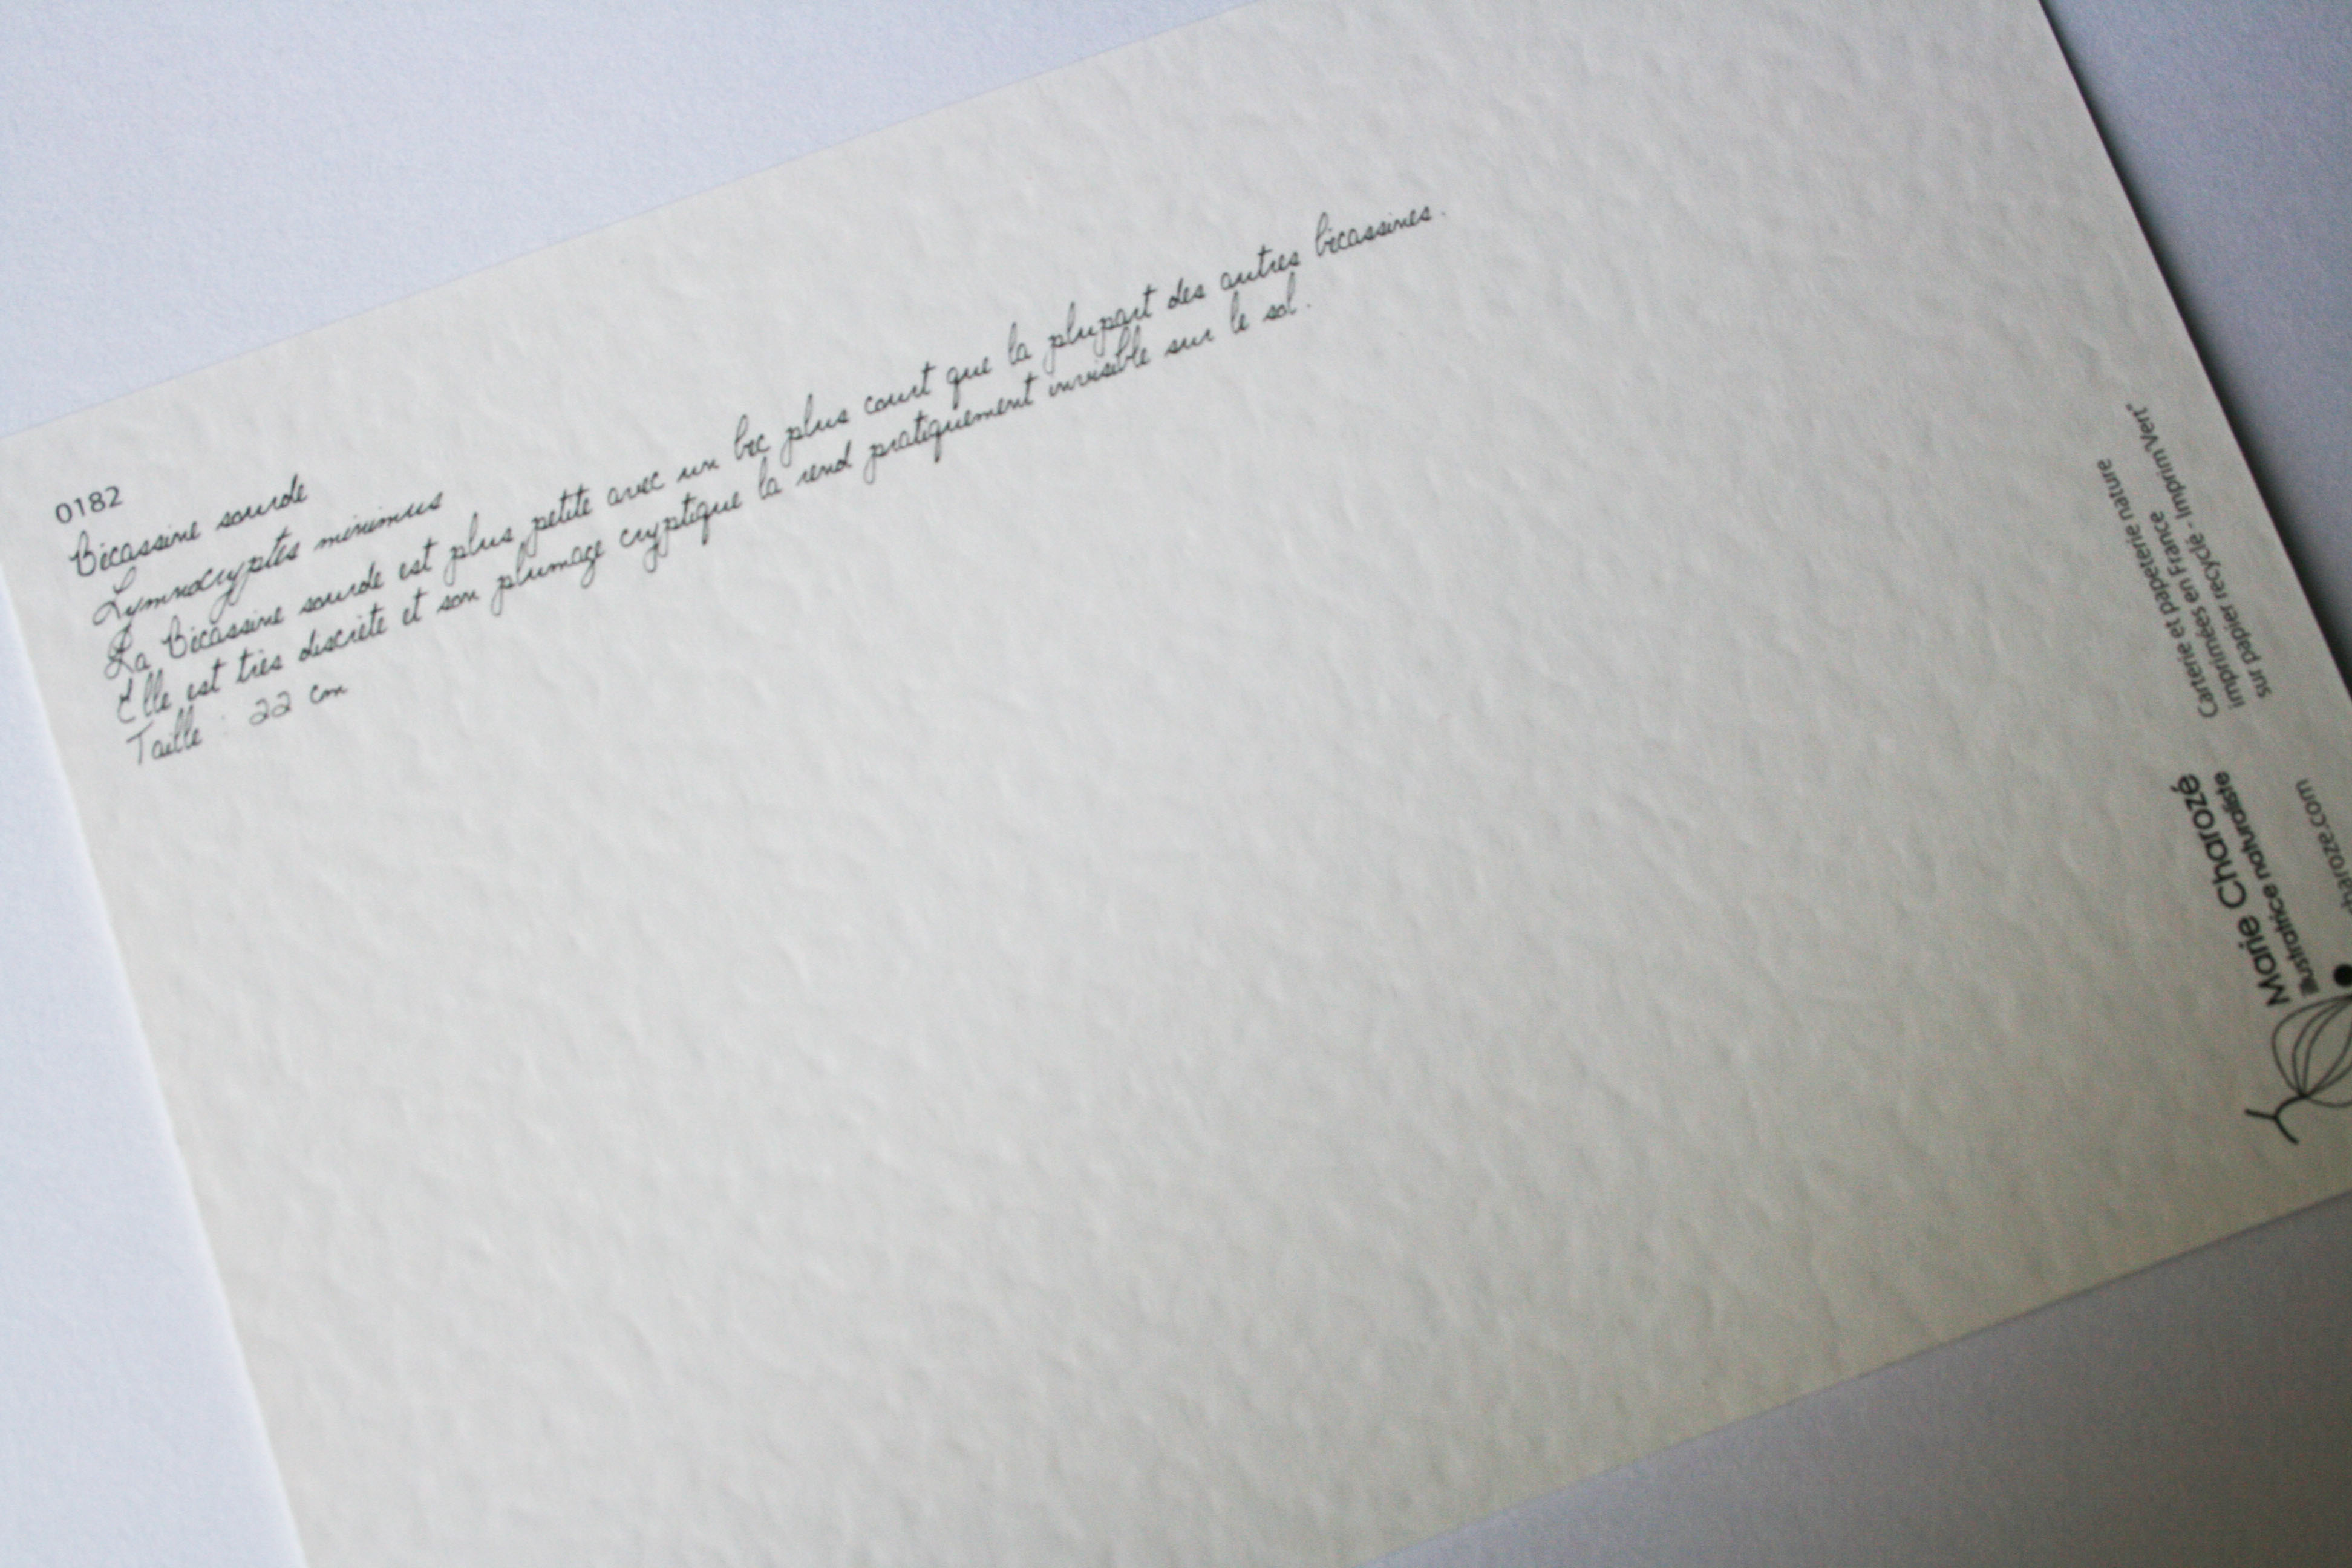 0182
Bécassine sourde
Lymnocryptes minimus
La Bécassine sourde est plus petite avec un bec plus court que la plupart des autres bécassines.
Elle est très discrète et son plumage cryptique la rend pratiquement invisible sur le sol.
Taille : 22 cm
Carterie et papeterie nature
imprimées en France
sur papier recyclé - Imprim'Vert®
Marie Charozé
Illustratrice naturaliste
charoze.com